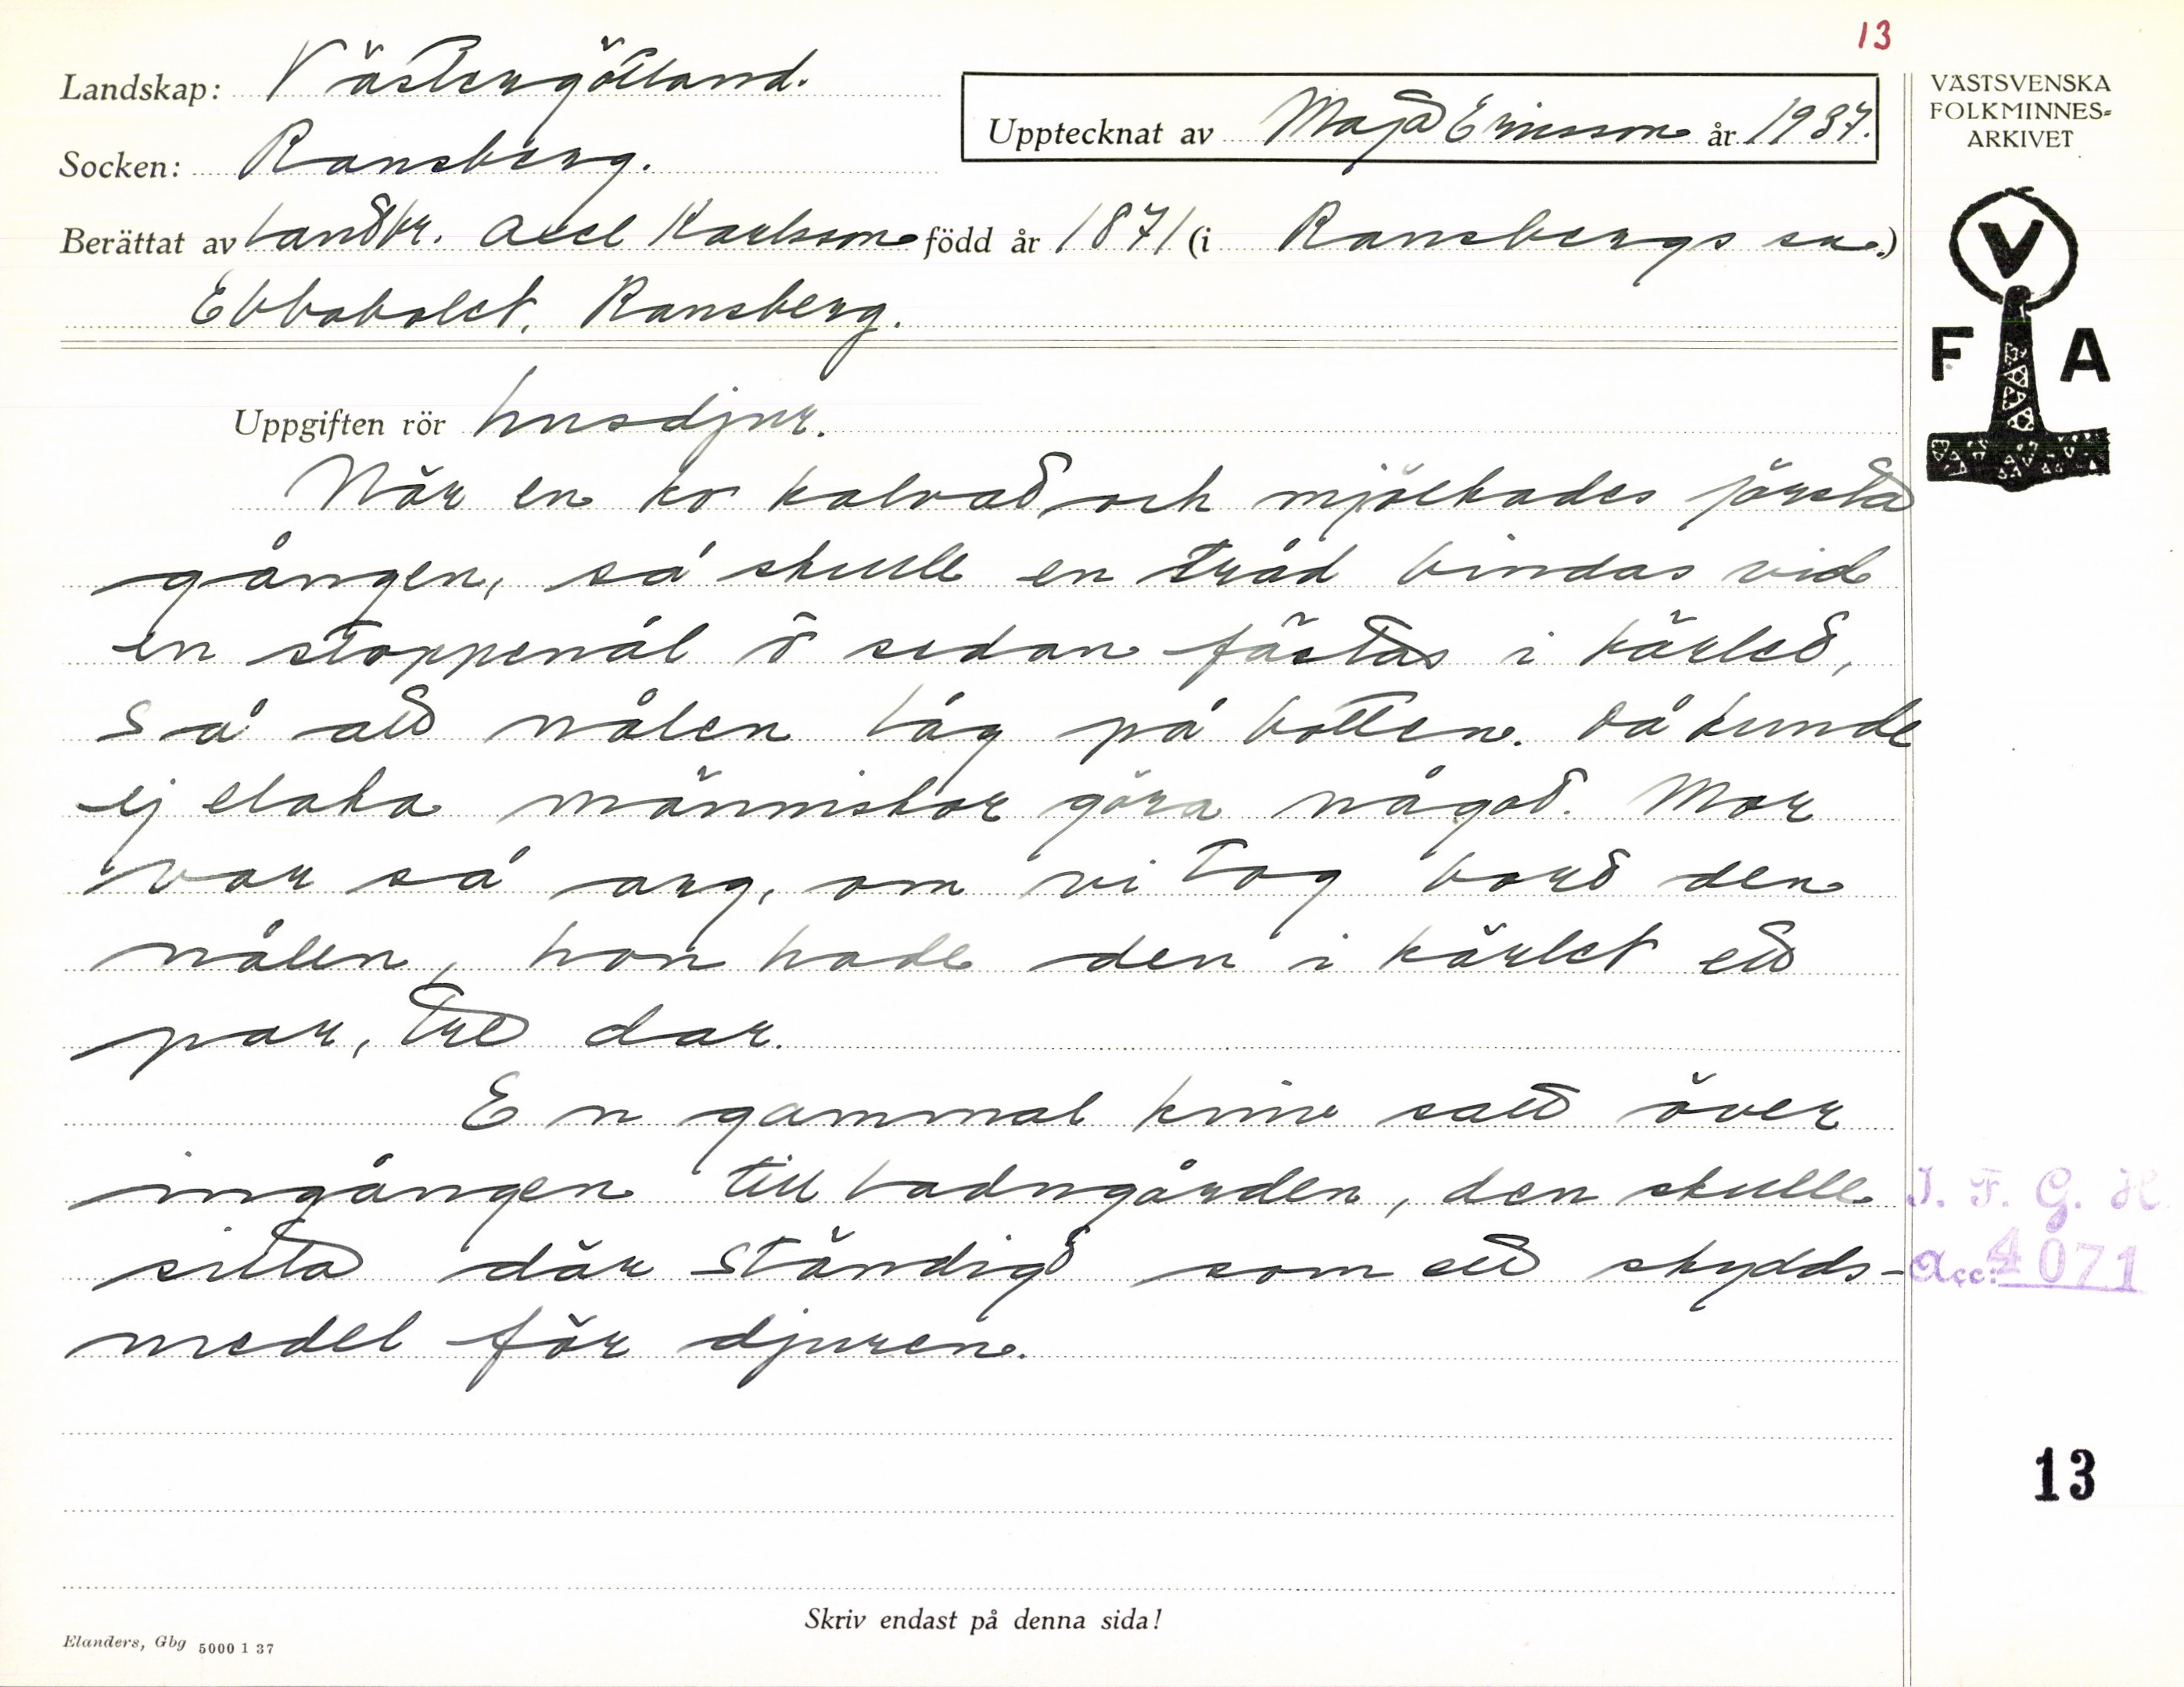 13
Landskap: Västergötland.
Socken: Ransberg.
Upptecknat av Maja Ericsson år 1937.
Berättat av Lantbr. Axel Karlsson född år 1871 (i Ransbergs sn.)
Ebbabolet, Ransberg.
VÄSTSVENSKA
FOLKMINNES=
ARKIVET
V
F A
Uppgiften rör husdjur.
När en ko kalvat och mjölkades första
gången, så skulle en tråd bindas vid
en stoppenål o sedan fästas i kärlet,
så att nålen låg på botten. Då kunde
ej elaka människor göra något. Mor
var så arg, om vi tog bort den
nålen, hon hade den i kärlet ett
par, tre dar.
En gammal kniv satt över
ingången till ladugården, den skulle
sitta där ständigt som ett skydds-
medel för djuren.
I. F. G. H.
Acc: 4071
13
Skriv endast på denna sida!
Elanders, Gbg 5000 1 37